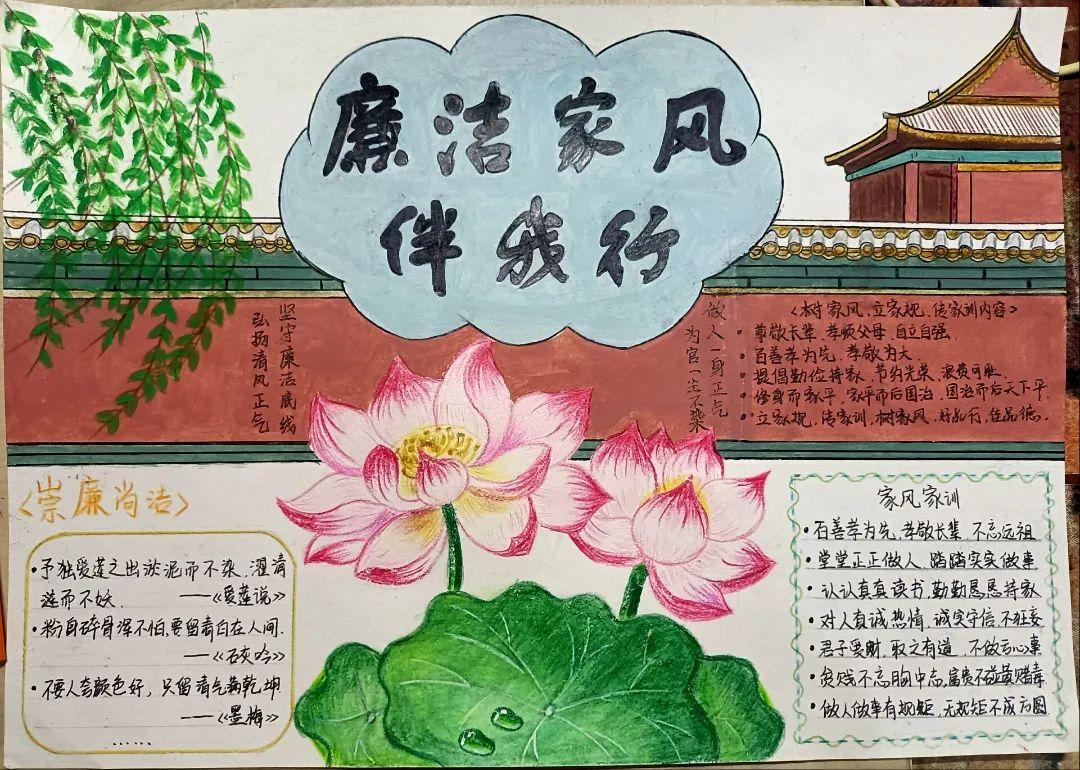 廉洁家风
伴我行
坚守廉洁底线
弘扬清风正气
做人一身正气
为官一生不染
<树家风、立家规、传家训内容>
• 尊敬长辈、孝顺父母、自立自强.
• 百善孝为先,孝敬为大.
• 提倡勤俭持家,节约光荣、浪费可耻.
• 修身而家平,家平而后国治,国治而后天下平.
• 立家规,传家训,树家风,好品行,佳品德.
<崇廉尚洁>
• 予独爱莲之出淤泥而不染,濯清
涟而不妖.——《爱莲说》
• 粉身碎骨浑不怕,要留青白在人间.
——《石灰吟》
• 不要人夸颜色好,只留清气满乾坤
——《墨梅》
......
家风家训
• 百善孝为先,孝敬长辈 不忘远祖
• 堂堂正正做人 踏踏实实做事
• 认认真真读书,勤勤恳恳持家
• 对人真诚热情,诚实守信,不狂妄
• 君子爱财,取之有道,不做亏心事
• 贫贱不忘胸中志,富贵不沾黄赌毒
• 做人做事有规矩,无规矩不成方圆